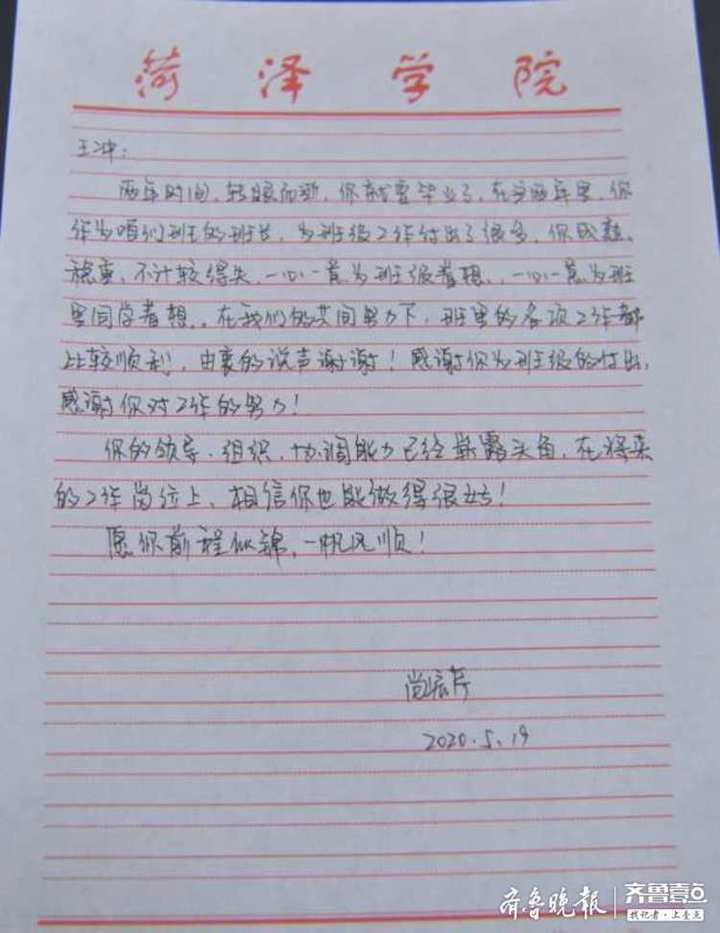 菏泽学院
王冲：
两年时间，转眼而逝，你就要毕业了，在这两年里，你
作为咱们班的班长，为班级工作付出了很多，你成熟、
稳重、不计较得失，一心一意为班级着想，一心一意为班
里同学着想，在我们的共同努力下，班里的各项工作都
比较顺利，由衷的说声谢谢！感谢你为班级的付出，
感谢你对工作的努力！
你的领导、组织、协调能力已经崭露头角，在将来
的工作岗位上，相信你也能做得很好！
愿你前程似锦，一帆风顺！
2020.5.19
齐鲁晚报 齐鲁壹点
找记者·上壹点